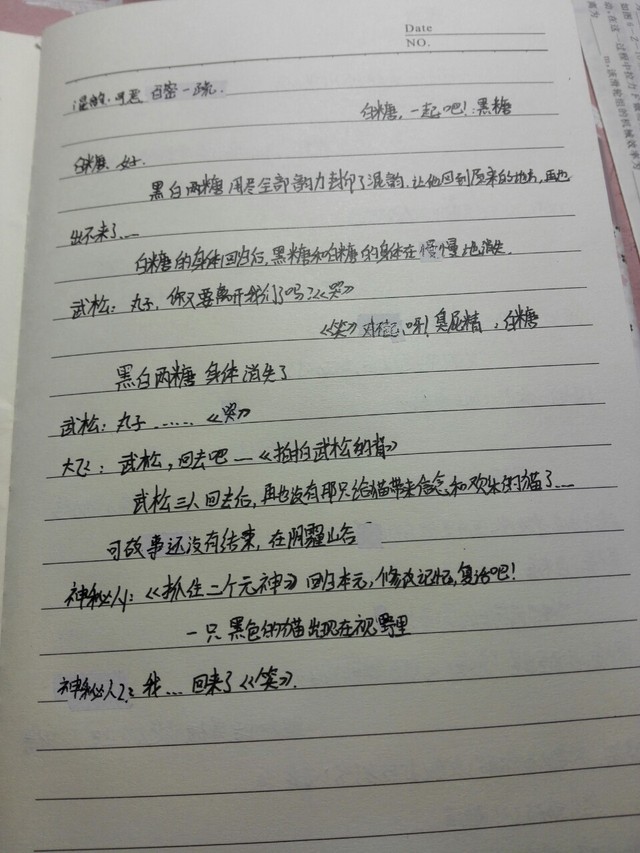 Date
NO.
混的:可恶 百密一疏.
白糖,一起吧!:黑糖
白糖:好.
黑白两糖用尽全部韵力封印了混韵,让他回到原来的地方,再也
出不来了……
白糖的身体回归后,黑糖和白糖的身体在慢慢地消失.
武松:丸子,你又要离开我们了吗?《哭》
《笑》对不起,呀!臭屁精,:白糖
黑白两糖身体消失了
武松:丸子……《哭》
大飞:武松,回去吧—《拍拍武松的背》
武松三人回去后,再也没有那只给猫带来信念和欢乐的猫了……
可故事还没有结束,在阴霾山谷
神秘人1:《抓住二个元神》回归本元,修改记忆,复活吧!
一只黑色的猫出现在视野里
神秘人2:我…回来了《笑》.